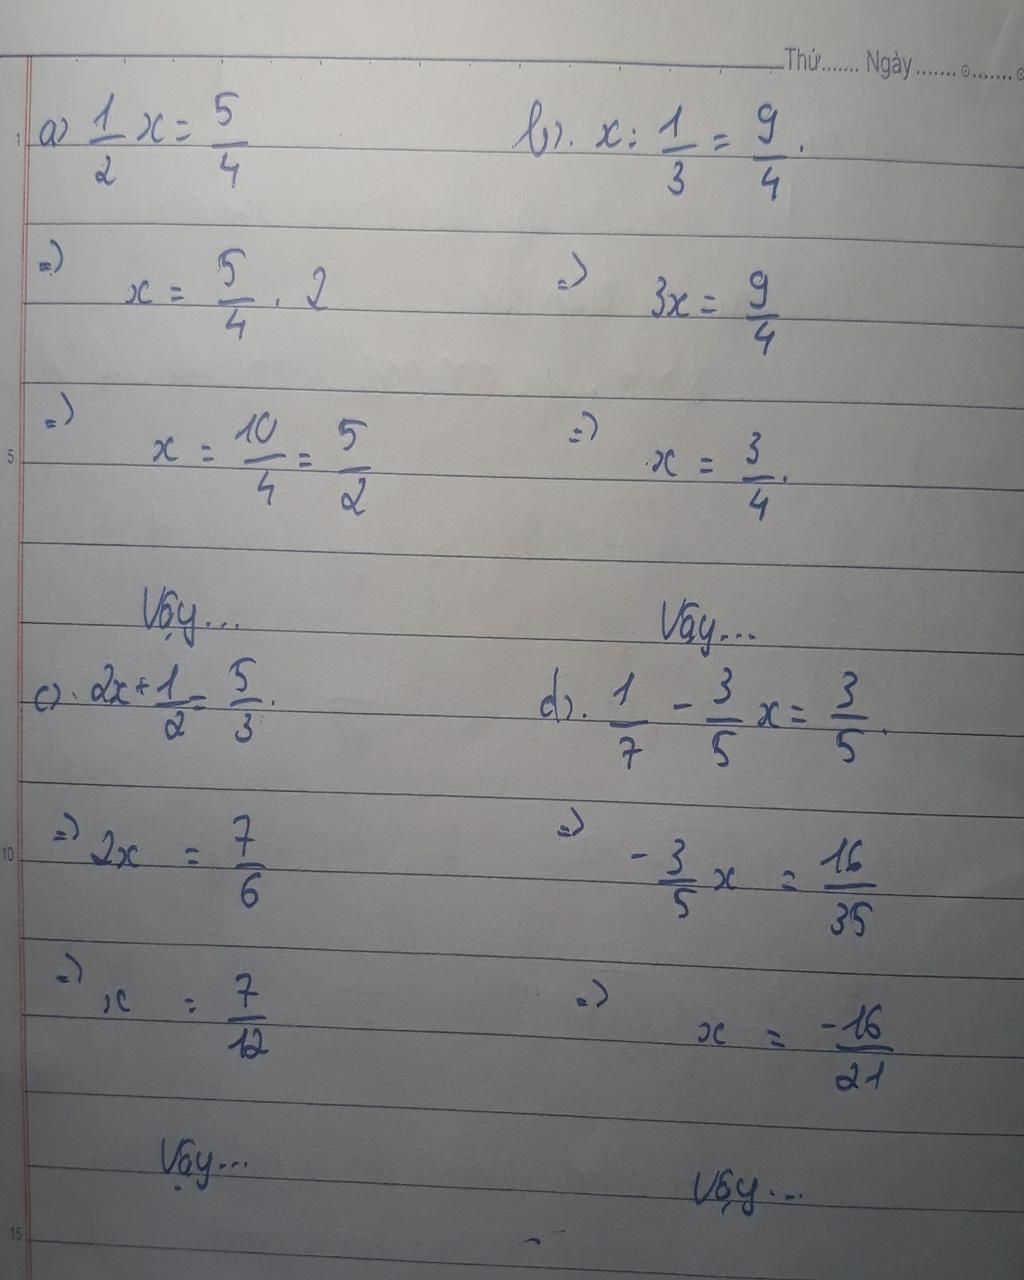 Thứ....... Ngày.............
a) 1/2 x = 5/4
=> x = 5/4 . 2
=> x = 10/4 = 5/2
Vậy...
b). x : 1/3 = 9/4.
=> 3x = 9/4
=> x = 3/4.
Vậy...
c). 2x + 1/2 = 5/3.
=> 2x = 7/6
=> x = 7/12
Vậy...
d). 1/7 - 3/5 x = 3/5.
=> -3/5 x = 16/35
=> x = -16/21
Vậy...
1
5
10
15